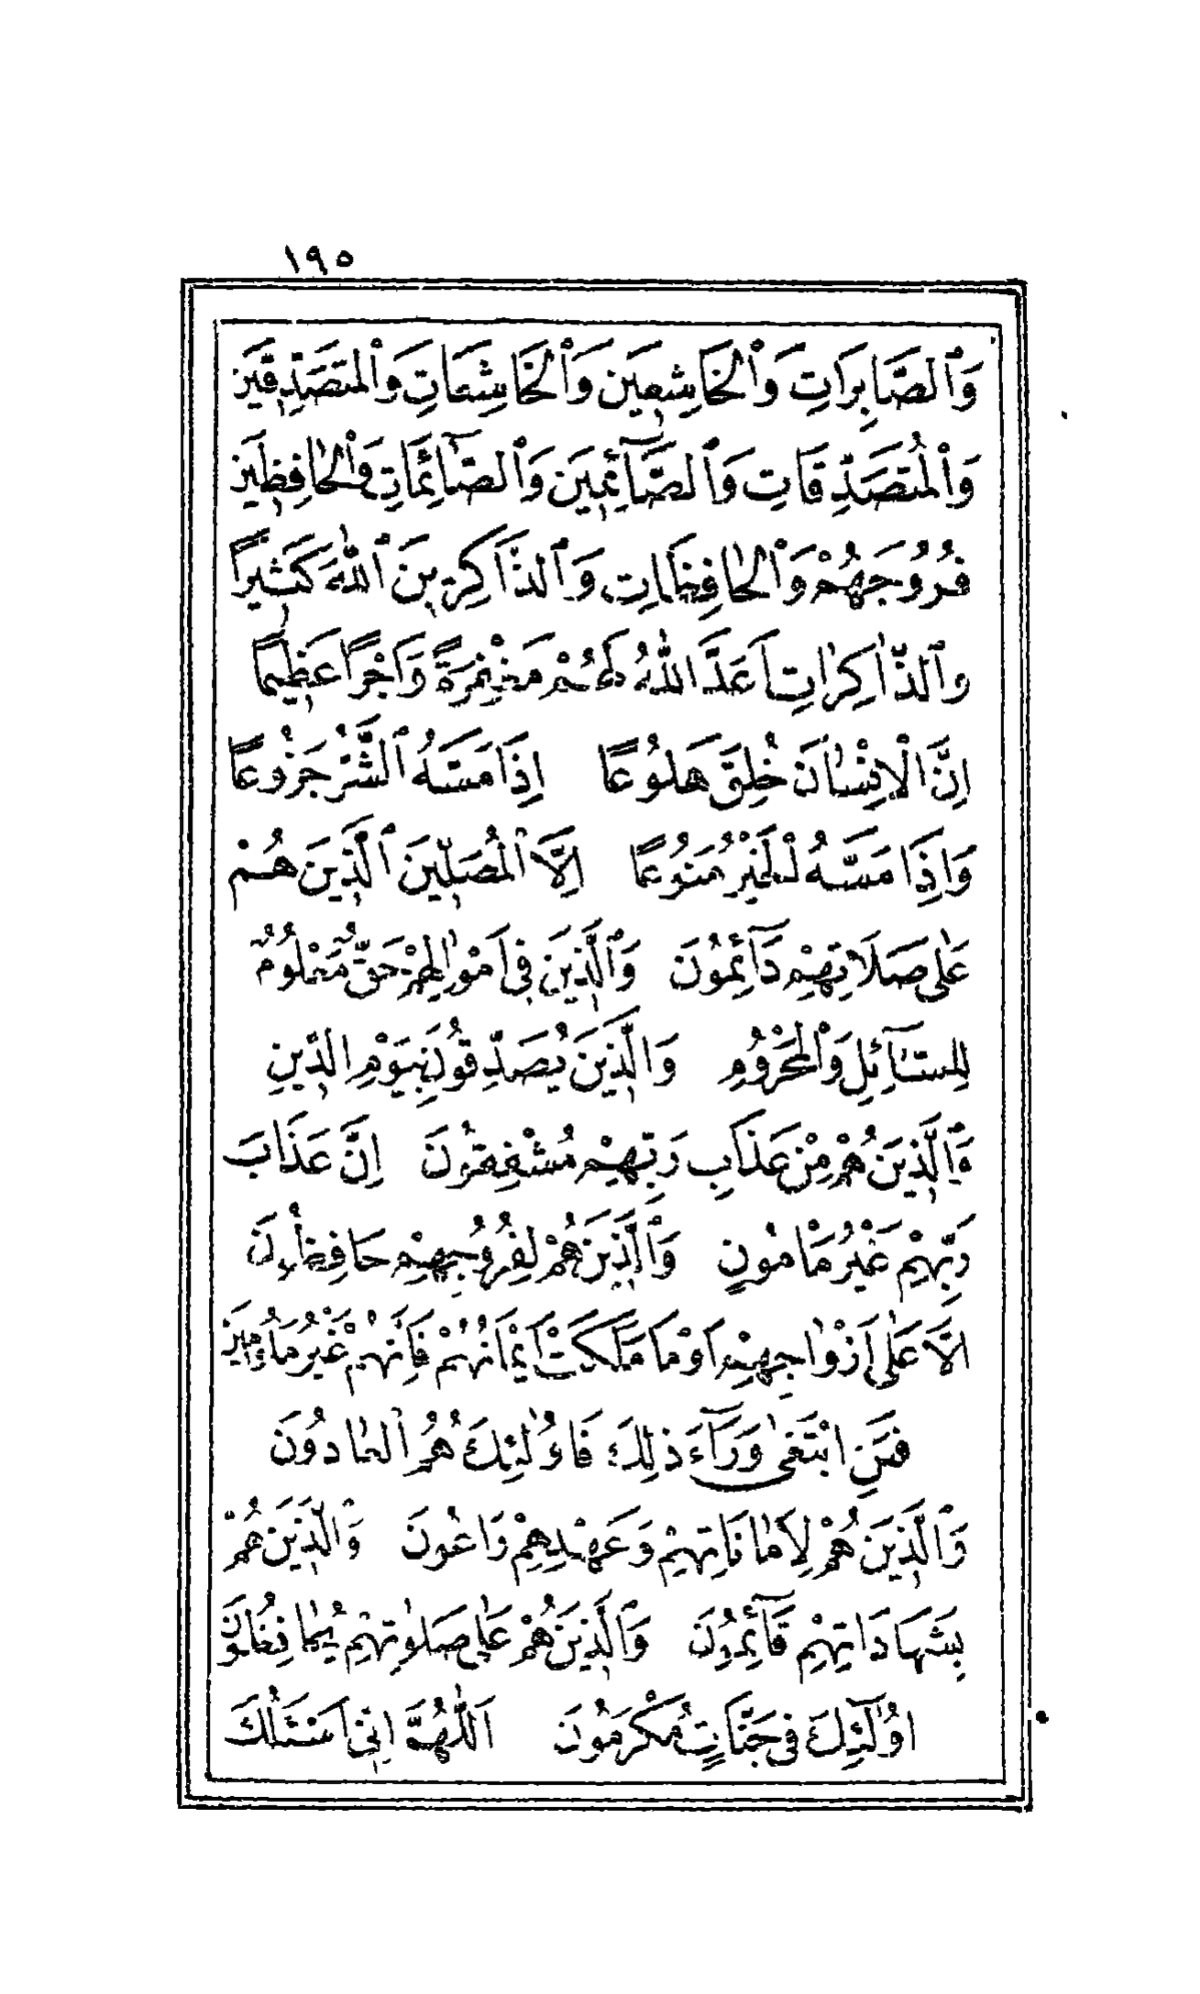 ١٩٥
وَٱلصَّابِرَاتِ وَٱلْخَاشِعِينَ وَٱلْخَاشِعَاتِ وَٱلْمُتَصَدِّقِينَ
وَٱلْمُتَصَدِّقَاتِ وَٱلصَّآئِمِينَ وَٱلصَّآئِمَاتِ وَٱلْحَافِظِينَ
فُرُوجَهُمْ وَٱلْحَافِظَاتِ وَٱلذَّاكِرِينَ ٱللّٰهَ كَثِيرًا
وَٱلذَّاكِرَاتِ اَعَدَّ اللّٰهُ لَهُمْ مَغْفِرَةً وَاَجْرًا عَظِيمًا
اِنَّ الْاِنْسَانَ خُلِقَ هَلُوعًا اِذَا مَسَّهُ ٱلشَّرُّ جَزُوعًا
وَاِذَا مَسَّهُ الْخَيْرُ مَنُوعًا اِلَّا الْمُصَلِّينَ ٱلَّذِينَ هُمْ
عَلٰى صَلَاتِهِمْ دَآئِمُونَ وَٱلَّذِينَ فِى اَمْوٰالِهِمْ حَقٌّ مَعْلُومٌ
لِلسَّآئِلِ وَٱلْمَحْرُومِ وَالَّذِينَ يُصَدِّقُونَ بِيَوْمِ الدِّينِ
وَٱلَّذِينَ هُمْ مِنْ عَذَابِ رَبِّهِمْ مُشْفِقُونَ اِنَّ عَذَابَ
رَبِّهِمْ غَيْرُ مَاْمُونٍ وَٱلَّذِينَ هُمْ لِفُرُوجِهِمْ حَافِظُونَ
اِلَّا عَلٰى اَزْوَاجِهِمْ اَوْ مَا مَلَكَتْ اَيْمَانُهُمْ فَاِنَّهُمْ غَيْرُ مَلُومِينَ
فَمَنِ ابْتَغٰى وَرَآءَ ذٰلِكَ فَاُولٰئِكَ هُمُ الْعَادُونَ
وَٱلَّذِينَ هُمْ لِاَمَانَاتِهِمْ وَعَهْدِهِمْ رَاعُونَ وَٱلَّذِينَ هُمْ
بِشَهَادَاتِهِمْ قَآئِمُونَ وَٱلَّذِينَ هُمْ عَلٰى صَلٰوتِهِمْ يُحَافِظُونَ
اُولٰٓئِكَ فِى جَنَّاتٍ مُكْرَمُونَ اَللّٰهُمَّ اِنِّى اَسْئَلُكَ